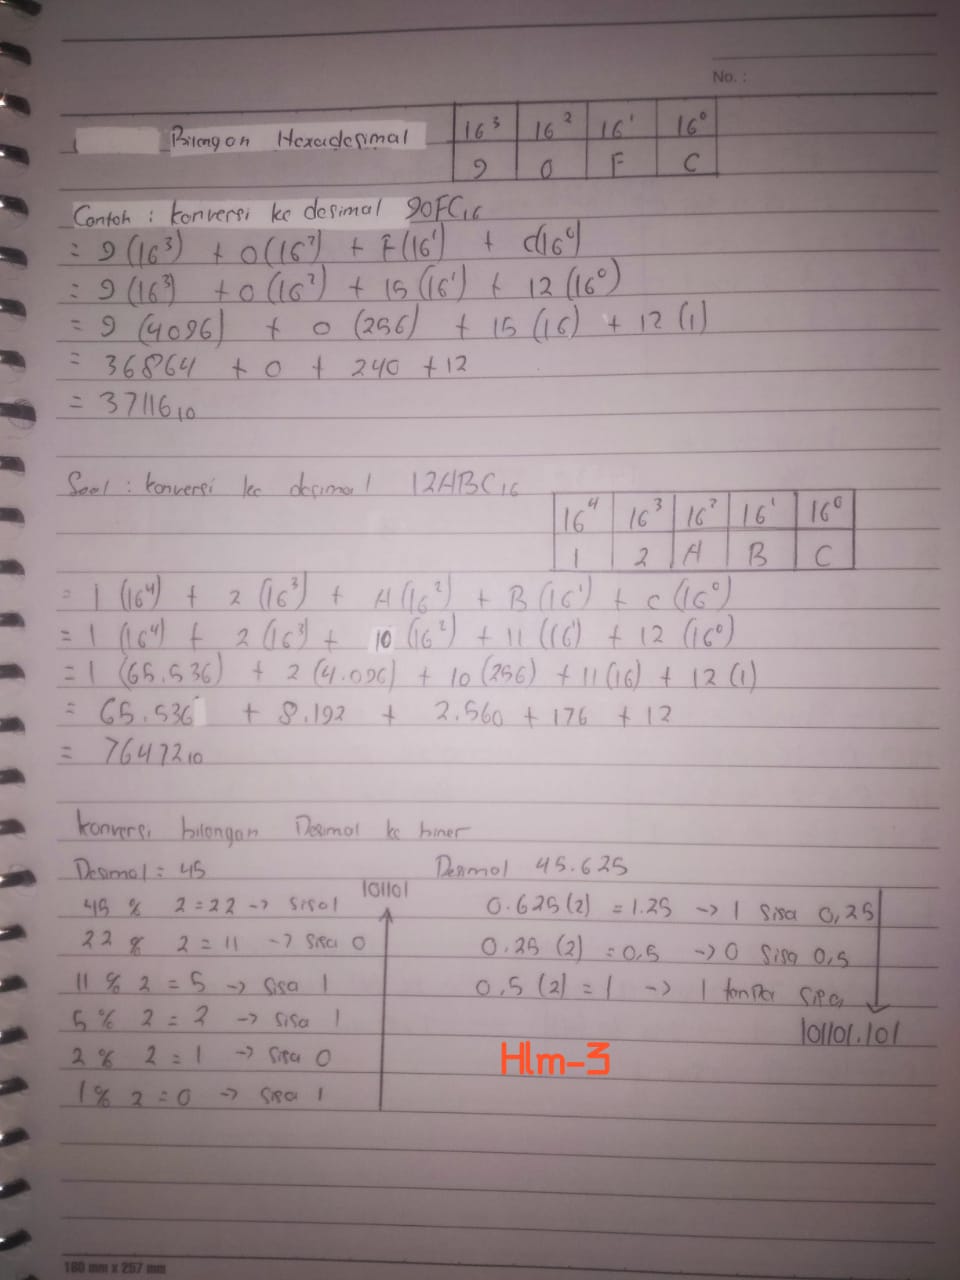 No. :
Bilangan Hexadesimal
16³ 16² 16¹ 16⁰
9 0 F C
Contoh : konversi ke desimal 90FC₁₆
= 9 (16³) + 0(16²) + F(16¹) + C(16⁰)
= 9 (16³) + 0 (16²) + 15 (16¹) + 12 (16⁰)
= 9 (4096) + 0 (256) + 15 (16) + 12 (1)
= 36864 + 0 + 240 + 12
= 37116₁₀
Soal : konversi ke desimal 12ABC₁₆
16⁴ 16³ 16² 16¹ 16⁰
1 2 A B C
= 1 (16⁴) + 2 (16³) + A (16²) + B (16¹) + C (16⁰)
= 1 (16⁴) + 2 (16³) + 10 (16²) + 11 (16¹) + 12 (16⁰)
= 1 (65.536) + 2 (4.096) + 10 (256) + 11 (16) + 12 (1)
= 65.536 + 8.192 + 2.560 + 176 + 12
= 76472₁₀
konversi bilangan Desimal ke biner
Desimal = 45
101101
45 % 2 = 22 -> sisa 1
22 % 2 = 11 -> sisa 0
11 % 2 = 5 -> sisa 1
5 % 2 = 2 -> sisa 1
2 % 2 = 1 -> sisa 0
1 % 2 = 0 -> sisa 1
Desimal 45.625
0.625 (2) = 1.25 -> 1 sisa 0,25
0.25 (2) = 0,5 -> 0 sisa 0,5
0,5 (2) = 1 -> 1 tanpa sisa
101101.101
Hlm-3
180 mm x 257 mm